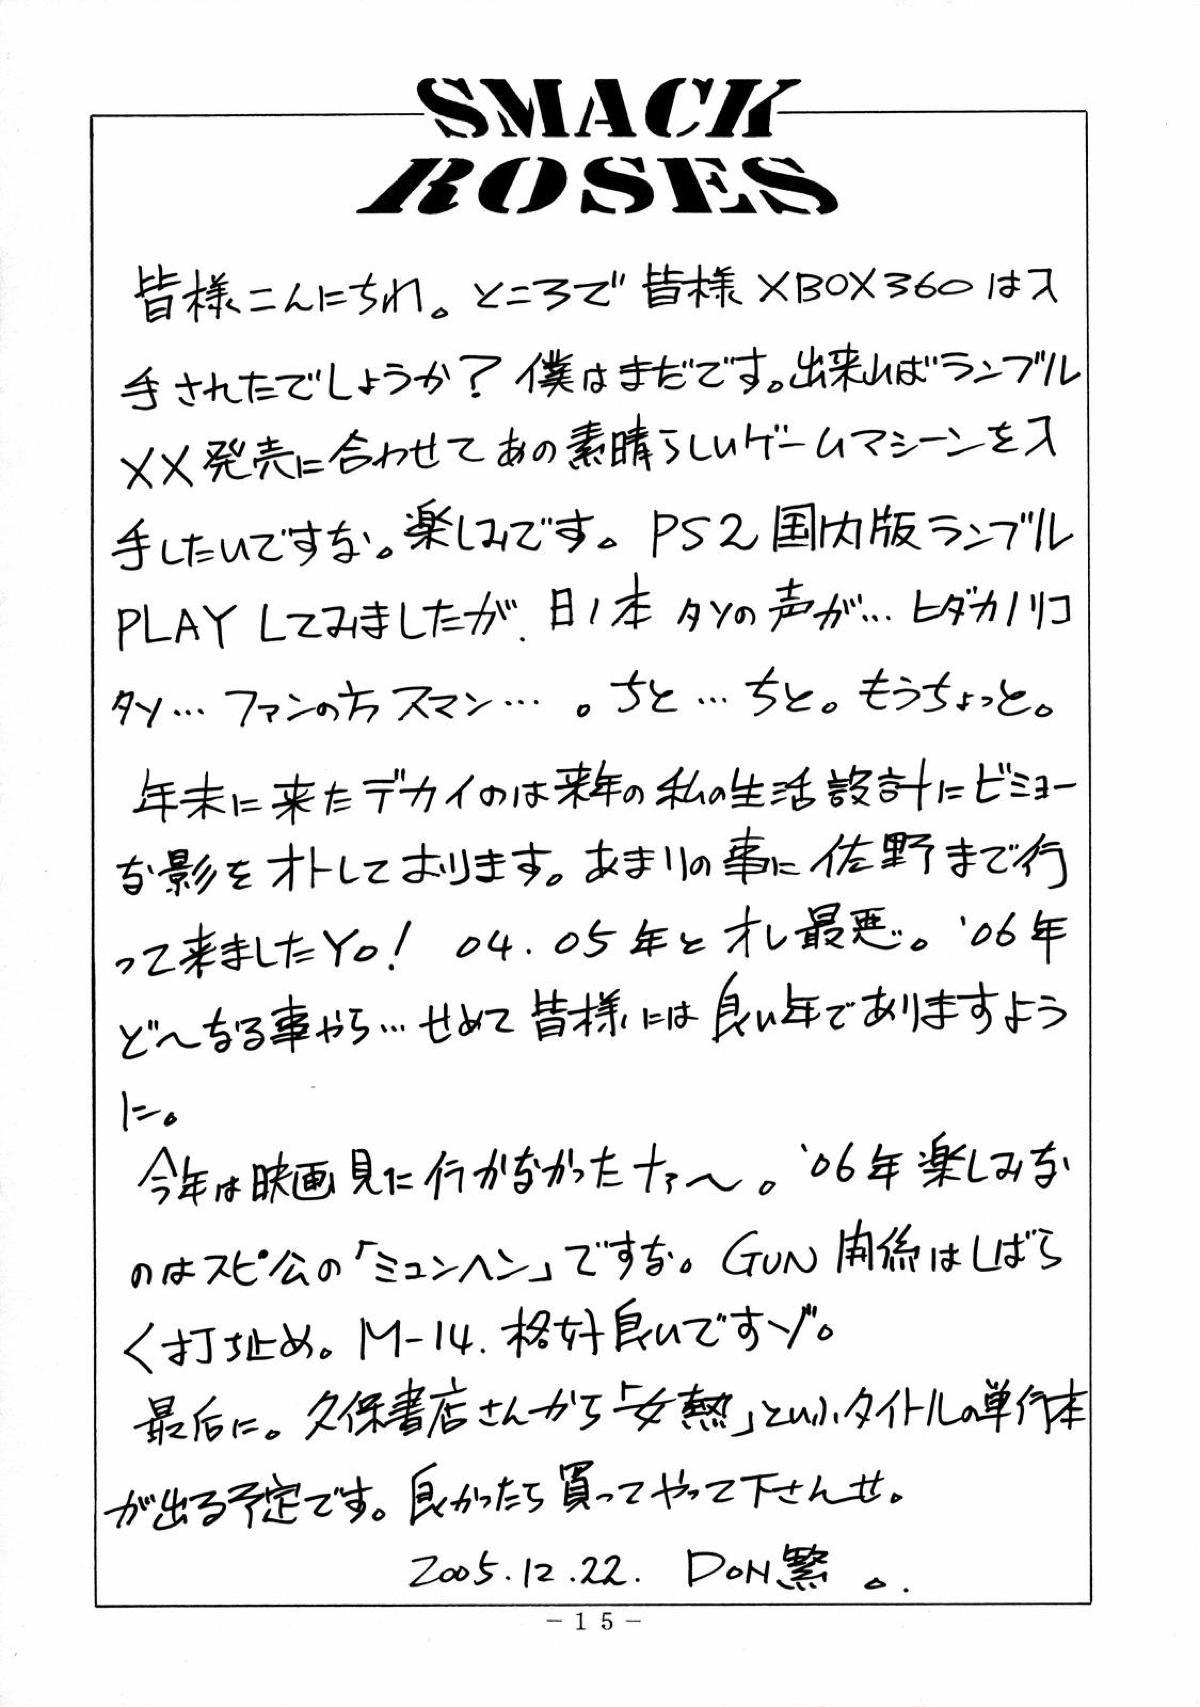 SMACK
ROSES
皆様こんにちわ。ところで皆様XBOX360は入
手されたでしょうか?僕はまだです。出来ればランブル
XX発売に合わせてあの素晴らしいゲームマシーンを入
手したいですな。楽しみです。PS2国内版ランブル
PLAYしてみましたが、日ノ本タソの声が…ヒダカノリコ
タソ…ファンの方スマン…。ちと…ちと。もうちょっと。
年末に来たデカイのは来年の私の生活設計にビミョー
な影をオトしております。あまりの事に佐野まで行
って来ましたYo! 04.05年とオレ最悪。'06年
ど〜なる事やら…せめて皆様には良い年でありますよう
に。
今年は映画見に行かなかったナァ〜。'06年楽しみな
のはスピ公の「ミュンヘン」ですな。GUN関係はしばら
く打ち止め。M-14.格好良いですゾ。
最后に。久保書店さんから「女熱」というタイトルの単行本
が出る予定です。良かったら買ってやって下さんせ。
2005.12.22. DON繁 。.
－15－